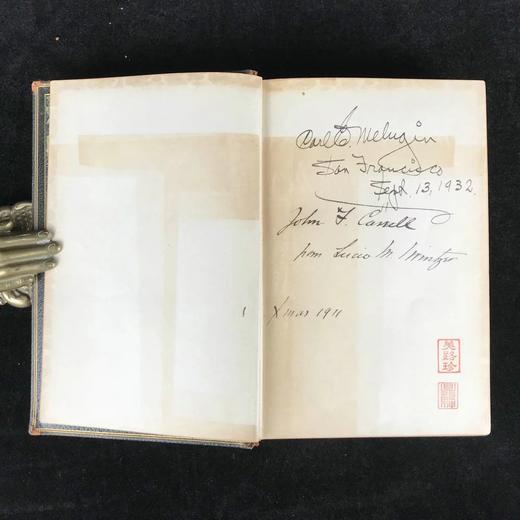 Carl E. Melugin
San Francisco
Sept. 13, 1932.
John F. Carrell
from Lucio M.
Xmas 1911
吳路珍